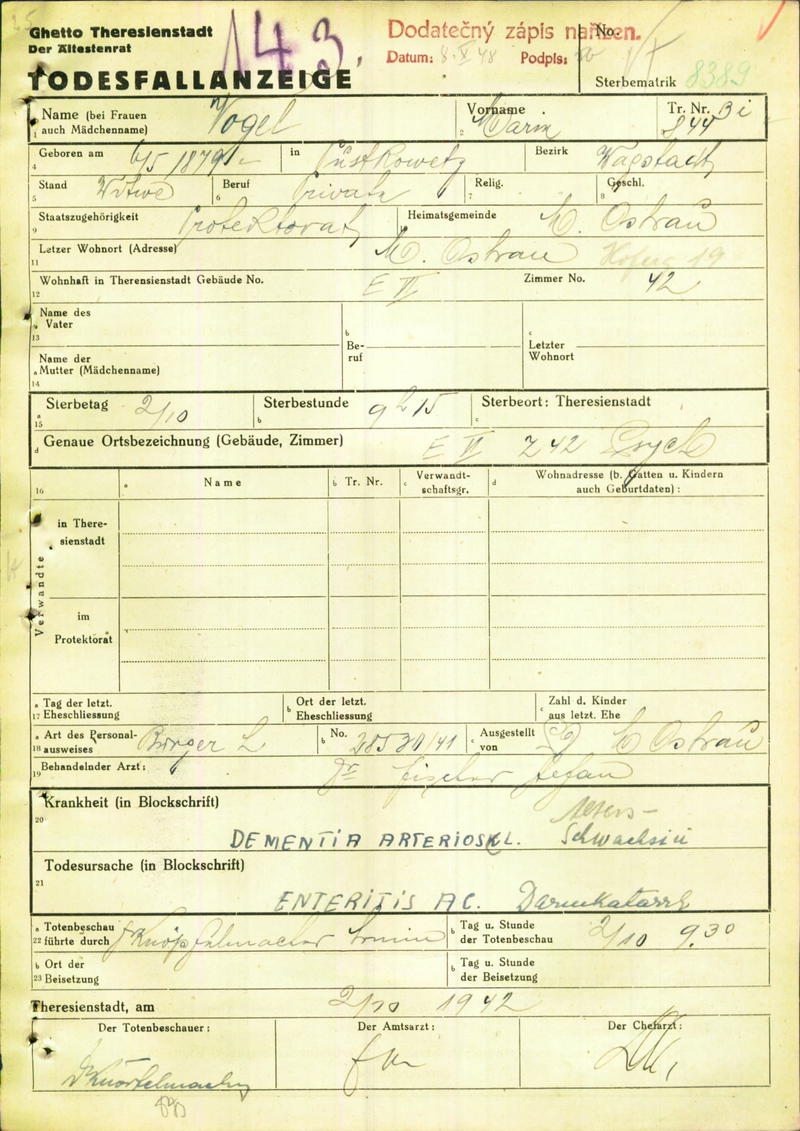 Ghetto Theresienstadt
Der Ältestenrat
TODESFALLANZEIGE
143
Dodatečný zápis nařízen.
Datum: 8. X 48 Podpis:
No.
Sterbematrik 8389
1 Name (bei Frauen auch Mädchenname) Vogel
2 Vorname
Tr. Nr. Bi 844
4 Geboren am 6/5 1879 in Pustkowetz Bezirk Wagstadt
5 Stand Witwe 6 Beruf Private 7 Relig. 8 Geschl.
9 Staatszugehörigkeit Protektorat Heimatsgemeinde M. Ostrau
11 Letzer Wohnort (Adresse) M. Ostrau 19
12 Wohnhaft in Theresienstadt Gebäude No. E VI Zimmer No. 42
13 a Name des Vater
14 a Name der Mutter (Mädchenname)
b Beruf
c Letzter Wohnort
15 a Sterbetag 2/10 b Sterbestunde 9h 15 c Sterbeort: Theresienstadt
d Genaue Ortsbezeichnung (Gebäude, Zimmer) E VI Z 42 Psych
16 a Name b Tr. Nr. c Verwandtschaftsgr. d Wohnadresse (b. Gatten u. Kindern auch Geburtdaten) :
Verwandte
in Theresienstadt
im Protektorat
17 a Tag der letzt. Eheschliessung b Ort der letzt. Eheschliessung c Zahl d. Kinder aus letzt. Ehe
18 a Art des Personalausweises Bürger L b No. c Ausgestellt von Ostrau
19 Behandelnder Arzt: Dr Fischer Stefan
20 Krankheit (in Blockschrift)
Alters-
DEMENTIA ARTERIOSKL. Schwachsin
21 Todesursache (in Blockschrift)
ENTERITIS AC. Darmkatarrh
22 a Totenbeschau führte durch b Tag u. Stunde der Totenbeschau 2/10 9.30
23 b Ort der Beisetzung b Tag u. Stunde der Beisetzung
Theresienstadt, am 2/10 1942
Der Totenbeschauer: Der Amtsarzt: Der Chefarzt: